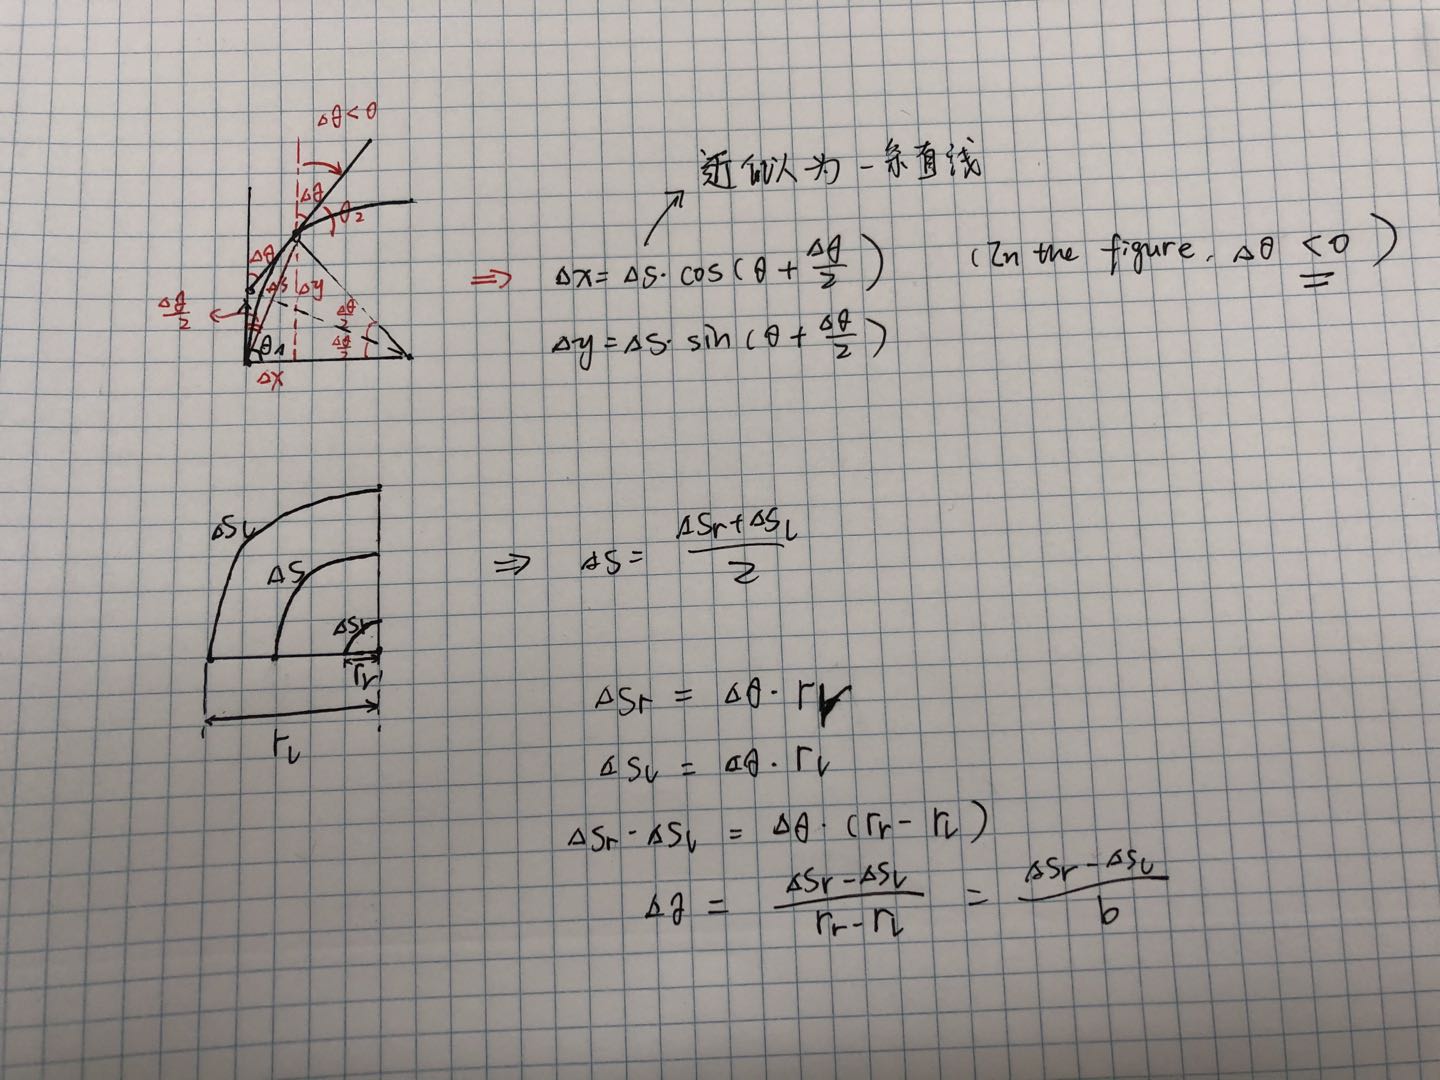 Δθ<0
Δθ
θ2
Δθ
Δθ/2
ΔS
Δy
Δθ/2
Δθ/2
θ1
Δx
近似认为一条直线
⇒ Δx = ΔS·cos(θ + Δθ/2) (In the figure, Δθ < 0)
Δy = ΔS·sin(θ + Δθ/2)
ΔSl
ΔS
ΔSr
rr
rl
⇒ ΔS = (ΔSr+ΔSl)/2
ΔSr = Δθ·rr
ΔSl = Δθ·rl
ΔSr - ΔSl = Δθ·(rr - rl)
Δθ = (ΔSr - ΔSl)/(rr - rl) = (ΔSr - ΔSl)/b